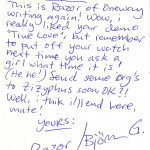 This is Razor of Oneway
writing again! Wow, i
really liked your demo
"True Love", but remember
to put off your watch
next time you ask a
girl what time it is!
(He he!) Send some org's
to Zizyphus soon OK?!
Well, i think i'll end here,
mate!
YOURS:
Razor / Björn G.